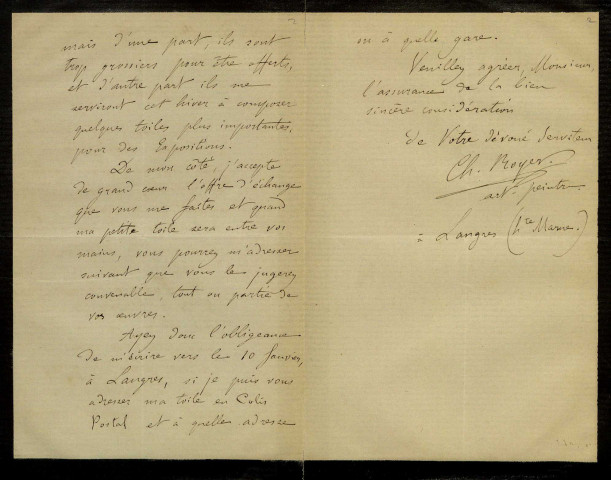 2
mais d'une part, ils sont
trop grossiers pour être offerts,
et d'autre part ils me
serviront cet hiver à composer
quelques toiles plus importantes,
pour des Expositions.
De mon côté, j'accepte
de grand cœur l'offre d'échange
que vous me faites et quand
ma petite toile sera entre vos
mains, vous pourrez m'adresser
suivant que vous le jugerez
convenable, tout ou partie de
vos œuvres.
Ayez donc l'obligeance
de m'écrire vers le 10 Janvier,
à Langres, si je puis vous
adresser ma toile en Colis
Postal et à quelle adresse
ou à quelle gare.
Veuillez agréer, Monsieur,
l'assurance de la bien
sincère considération
de Votre dévoué serviteur
Ch. Royer.
art. peintre
à Langres (hte Marne.)